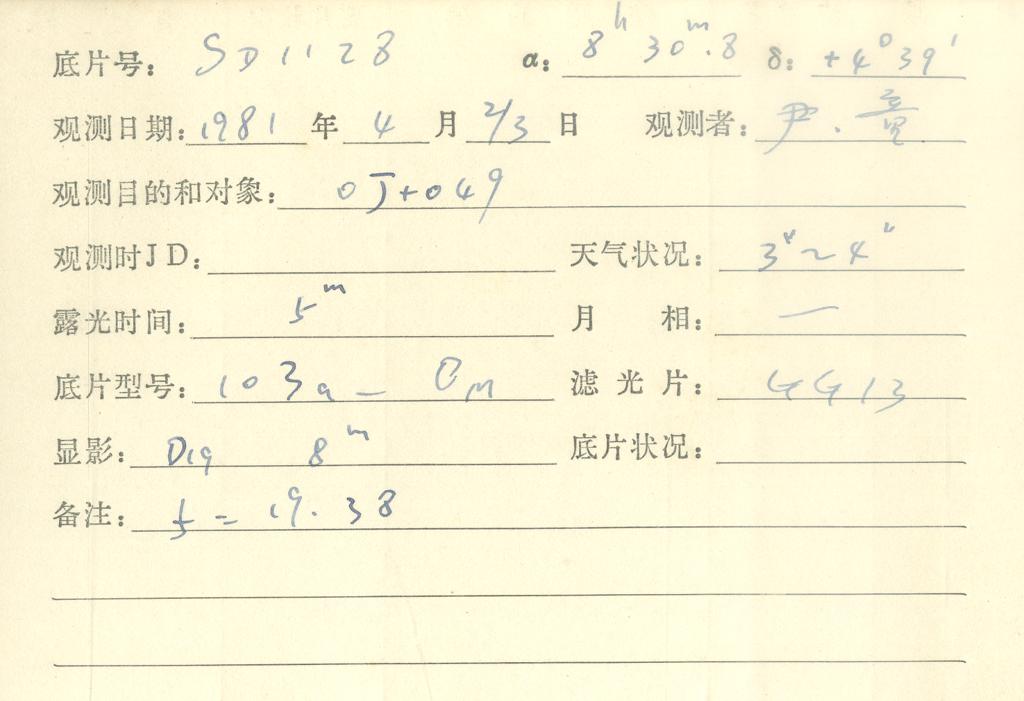 底片号: SD1128 α: 8ʰ 30ᵐ.8 δ: +4°39′
观测日期: 1981 年 4 月 2/3 日 观测者: 尹.童
观测目的和对象: OJ+049
观测时JD: 天气状况: 3"~4"
露光时间: 5ᵐ 月 相: 一
底片型号: 103a-O 滤光片: GG13
显影: D19 8ᵐ 底片状况:
备注: f = 19.38